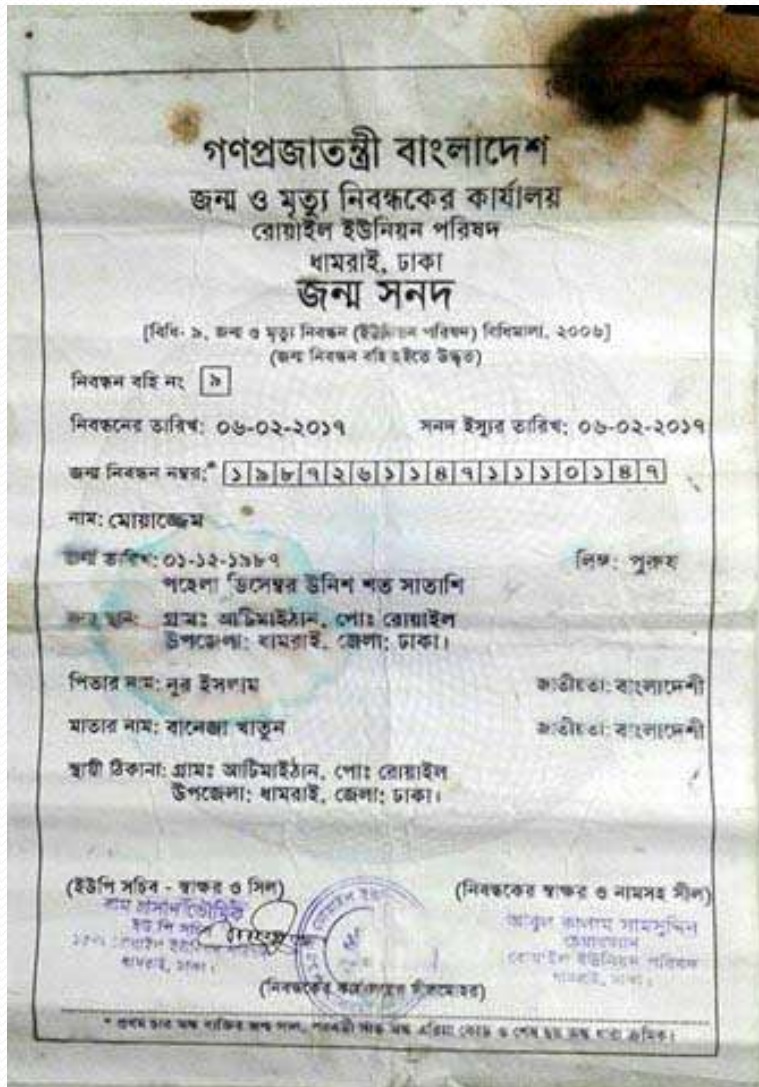 গণপ্রজাতন্ত্রী বাংলাদেশ
জন্ম ও মৃত্যু নিবন্ধকের কার্যালয়
রোয়াইল ইউনিয়ন পরিষদ
ধামরাই, ঢাকা
জন্ম সনদ
[বিধি- ৯, জন্ম ও মৃত্যু নিবন্ধন (ইউনিয়ন পরিষদ) বিধিমালা, ২০০৬]
(জন্ম নিবন্ধন বহি হইতে উদ্ধৃত)
নিবন্ধন বহি নং ৯
নিবন্ধনের তারিখ: ০৬-০২-২০১৭ সনদ ইস্যুর তারিখ: ০৬-০২-২০১৭
জন্ম নিবন্ধন নম্বর:* ১৯৮৭২৬১১৪৭১১১০১৪৭
নাম: মোয়াজ্জেম
জন্ম তারিখ: ০১-১২-১৯৮৭ লিঙ্গ: পুরুষ
পহেলা ডিসেম্বর উনিশ শত সাতাশি
জন্ম স্থান: গ্রামঃ আটিমাইঠান, পোঃ রোয়াইল
উপজেলা: ধামরাই, জেলা: ঢাকা।
পিতার নাম: নুর ইসলাম জাতীয়তা: বাংলাদেশী
মাতার নাম: বানেজা খাতুন জাতীয়তা: বাংলাদেশী
স্থায়ী ঠিকানা: গ্রামঃ আটিমাইঠান, পোঃ রোয়াইল
উপজেলা: ধামরাই, জেলা: ঢাকা।
(ইউপি সচিব - স্বাক্ষর ও সিল) (নিবন্ধকের স্বাক্ষর ও নামসহ সীল)
রাম প্রসাদ ভৌমিক আবুল কালাম সামসুদ্দিন
ইউ পি সচিব চেয়ারম্যান
রোয়াইল ইউনিয়ন পরিষদ
ধামরাই, ঢাকা। ধামরাই, ঢাকা।
(নিবন্ধকের কার্যালয়ের সীলমোহর)
* প্রথম চার অঙ্ক ব্যক্তির জন্ম সাল, পরবর্তী সাত অঙ্ক এরিয়া কোড ও শেষ ছয় অঙ্ক ধারা ক্রমিক।